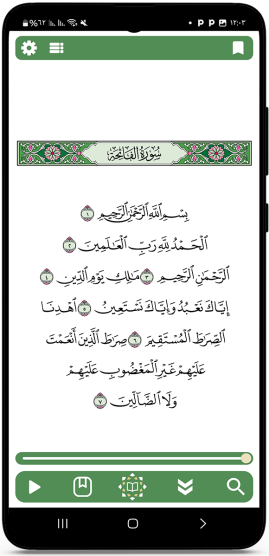 %٦٢ P P ١٢:٠٣
سُورَةُ الفَاتِحَةِ
بِسْمِ اللَّهِ الرَّحْمَٰنِ الرَّحِيمِ ١
الْحَمْدُ لِلَّهِ رَبِّ الْعَالَمِينَ ٢
الرَّحْمَٰنِ الرَّحِيمِ ٣ مَالِكِ يَوْمِ الدِّينِ ٤
إِيَّاكَ نَعْبُدُ وَإِيَّاكَ نَسْتَعِينُ ٥ اهْدِنَا
الصِّرَاطَ الْمُسْتَقِيمَ ٦ صِرَاطَ الَّذِينَ أَنْعَمْتَ
عَلَيْهِمْ غَيْرِ الْمَغْضُوبِ عَلَيْهِمْ
وَلَا الضَّالِّينَ ٧